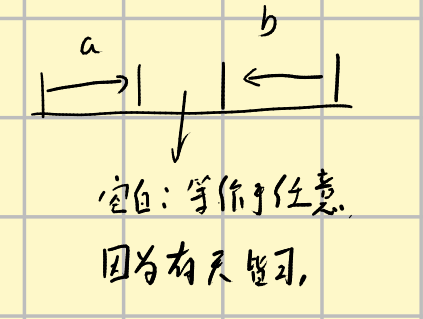 a
b
空白：等价于任意
因为有无皆可，